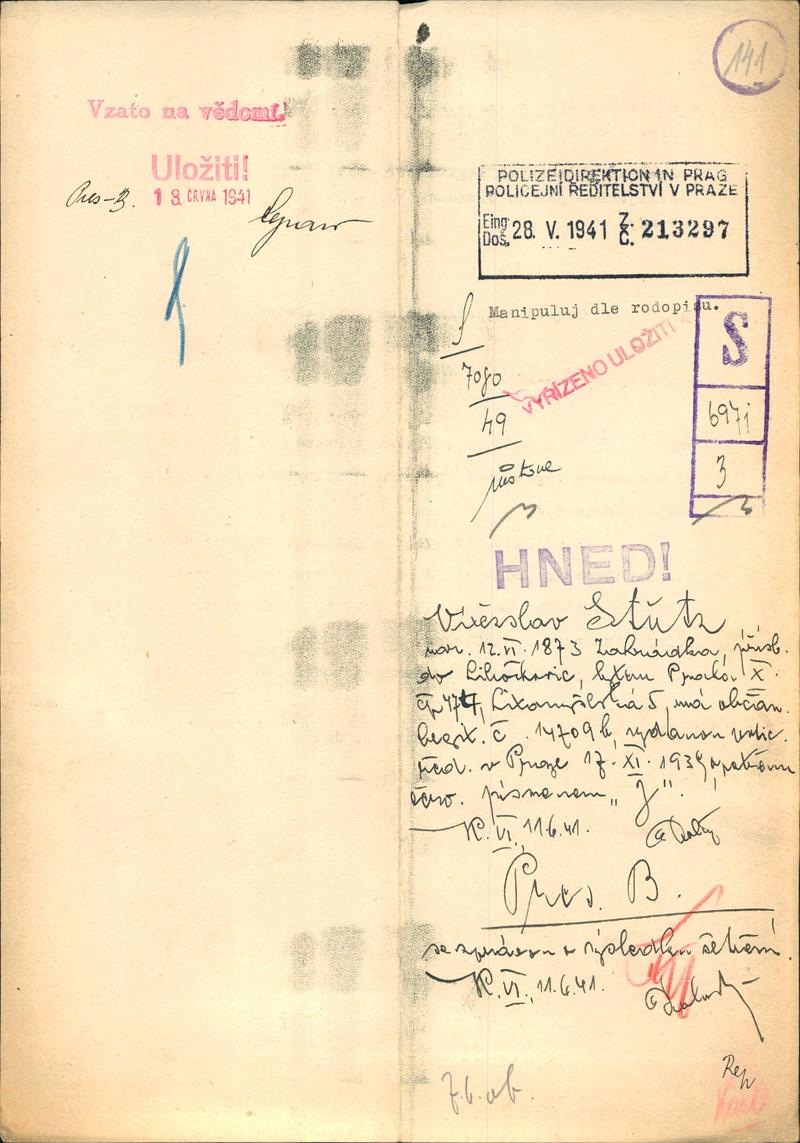 Vzato na vědomí.
Uložiti!
Pres-B. 13. ČRVNA 1941
141
POLIZEIDIREKTION IN PRAG
POLICEJNÍ ŘEDITELSTVÍ V PRAZE
Eing. Doš. 28. V. 1941 Z. Č. 213297
Manipuluj dle rodopisu.
VYŘÍZENO ULOŽITI
S
S
7080
49
697i
3
HNED!
Vítězslav Stütz
nar. 12. VI. 1873 Zahrádka, přísl.
do Libochovic, bytem Praha X.
čp. 474, má občan.
legit. č. 14709 b, vydanou polic.
řed. v Praze 17. XI. 1939 opatřenou
červ. písmenem „J".
K. VI. 11.6.41.
Pres. B.
se zprávou o výsledku šetření.
K. VI., 11.6.41.